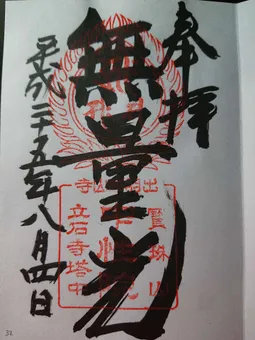 奉拝
無量光
平成二十五年八月四日
寳珠山
立石寺塔中